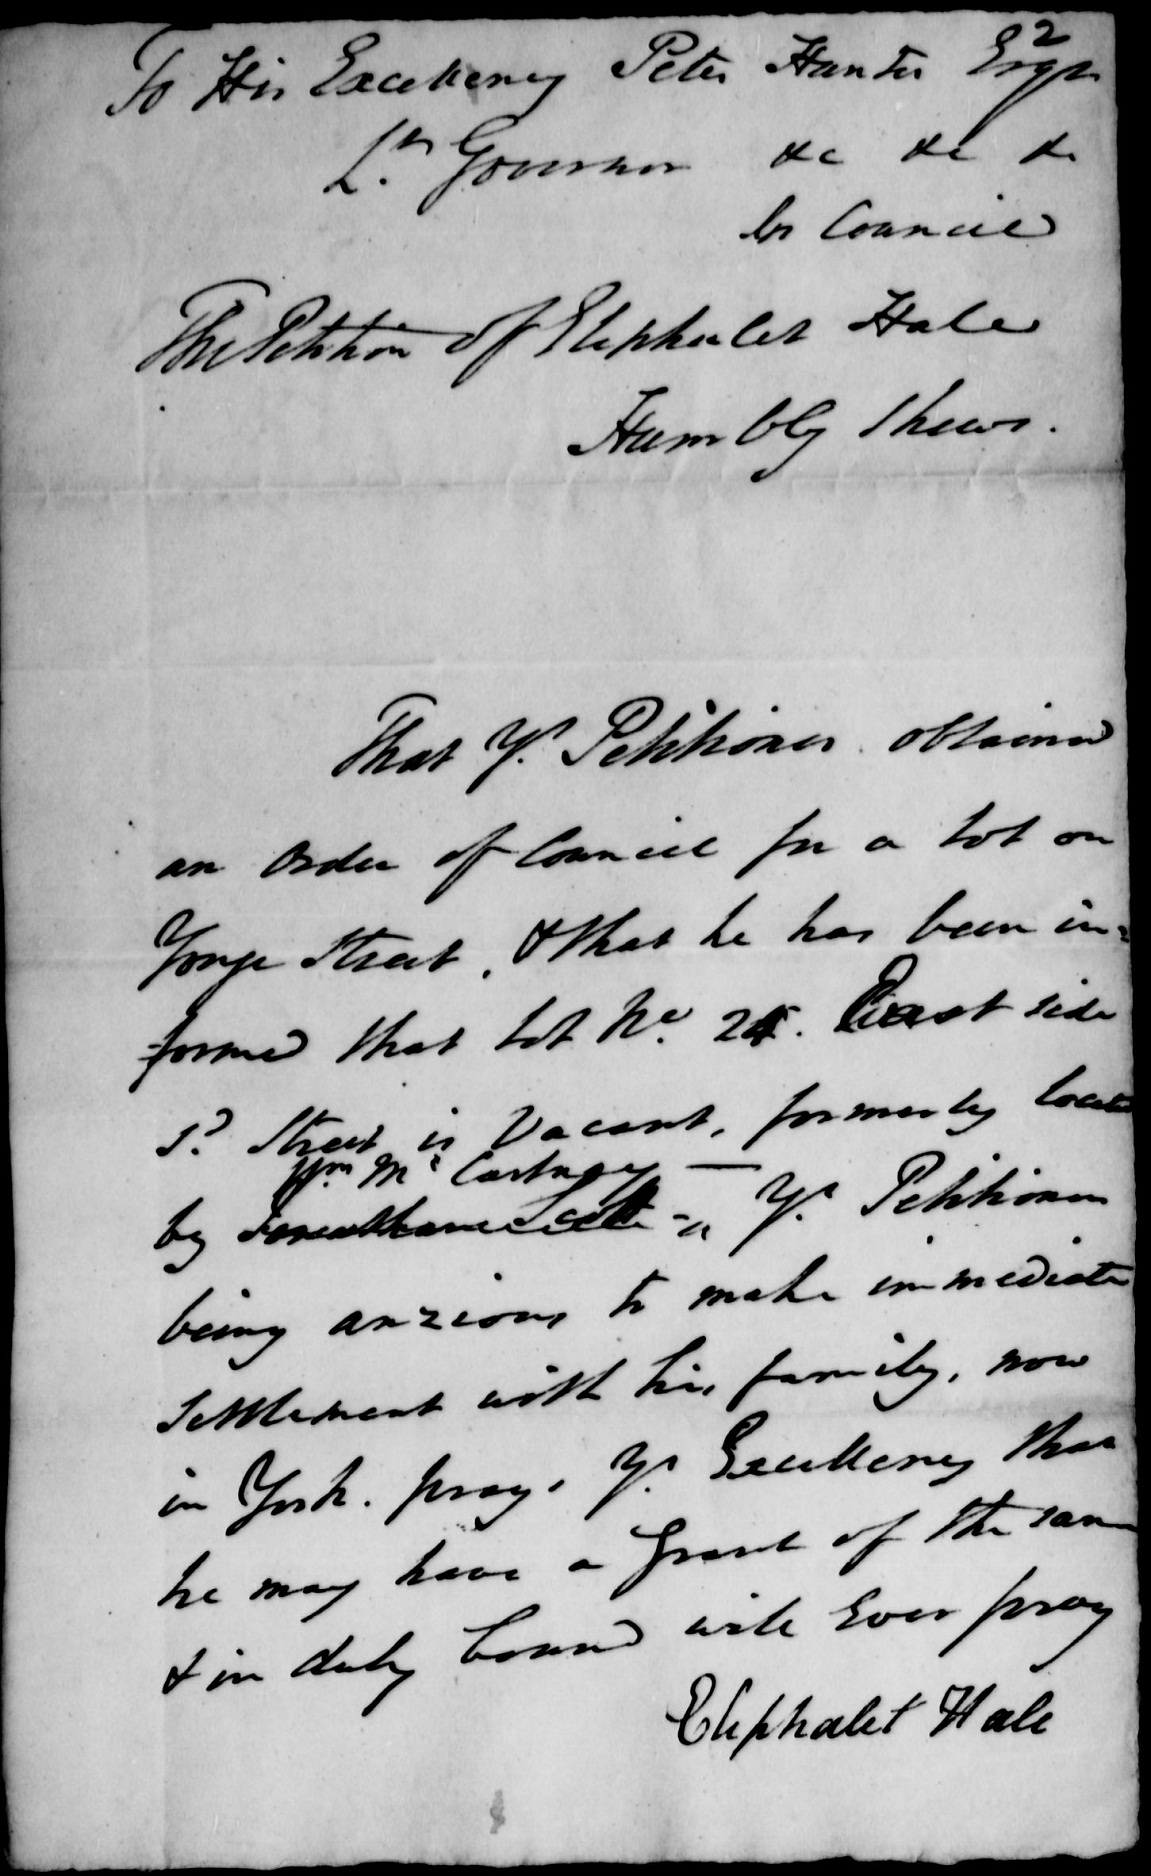 To His Excellency Peter Hunter Esqr
Lt. Governor &c &c &c
In Council
The Petition of Eliphalet Hale
Humbly Shews.
That Yr. Petitioner obtained
an Order of Council for a lot on
Yonge Street, & that he has been in=
=formed that lot No. 25. East side
sd. Street is Vacant, formerly located
Wm Mc Cartney —
by Yr. Petitioner
being anxious to make immediate
Settlement with his family, now
in York. prays Yr. Excellency that
he may have a Grant of the same
& in duty bound will Ever pray
Eliphalet Hale